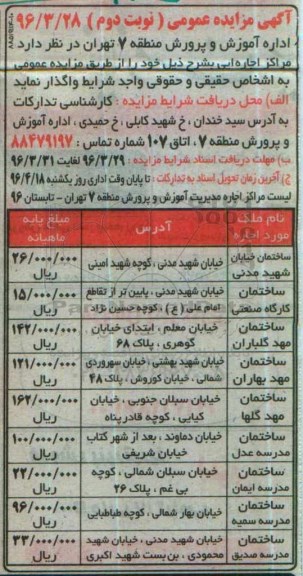 آگهی مزایده عمومی ( نوبت دوم ) ۹۶/۳/۲۸
اداره آموزش و پرورش منطقه ۷ تهران در نظر دارد
مراکز اجاره‌ایی بشرح ذیل خود را از طریق مزایده عمومی
به اشخاص حقیقی و حقوقی واجد شرایط واگذار نماید
الف) محل دریافت شرایط مزایده : کارشناسی تدارکات
به آدرس سید خندان ، خ شهید کابلی ، خ حمیدی ، اداره آموزش
و پرورش منطقه ۷ ، اتاق ۱۰۷ شماره تماس : ۸۸۴۷۹۱۹۷
ب) مهلت دریافت اسناد شرایط مزایده : ۹۶/۳/۲۹ لغایت ۹۶/۳/۳۱
ج) آخرین زمان تحویل اسناد به تدارکات : تا پایان وقت اداری روز یکشنبه ۹۶/۴/۱۸
لیست مراکز اجاره مدیریت آموزش و پرورش منطقه ۷ تهران - تابستان ۹۶
نام ملک مورد اجاره آدرس مبلغ پایه ماهیانه
ساختمان خیابان شهید مدنی خیابان شهید مدنی ، کوچه شهید امینی ۲۶/۰۰۰/۰۰۰ ریال
ساختمان کارگاه صنعتی خیابان شهید مدنی ، پایین تر از تقاطع امام علی (ع) ، کوچه حسین نژاد ۱۵/۰۰۰/۰۰۰ ریال
ساختمان مهد گلباران خیابان معلم ، ابتدای خیابان گوهری ، پلاک ۶۸ ۱۴۲/۰۰۰/۰۰۰ ریال
ساختمان مهد بهاران خیابان شهید بهشتی ، خیابان سهروردی شمالی ، خیابان کوروش ، پلاک ۴۸ ۱۲۱/۰۰۰/۰۰۰ ریال
ساختمان مهد گلها خیابان سبلان جنوبی ، خیابان کیایی ، کوچه قادر پناه ۱۶۲/۰۰۰/۰۰۰ ریال
ساختمان مدرسه عدل خیابان دماوند ، بعد از شهر کتاب خیابان شریفی ۱۰۰/۰۰۰/۰۰۰ ریال
ساختمان مدرسه ایمان خیابان سبلان شمالی ، کوچه بی غم ، پلاک ۲۶ ۲۲/۰۰۰/۰۰۰ ریال
ساختمان مدرسه سمیه خیابان بهار شمالی ، کوچه طباطبایی ۹۶/۰۰۰/۰۰۰ ریال
ساختمان مدرسه صدیق خیابان شهید مدنی ، خیابان شهید محمودی ، بن بست شهید اکبری ۳۳/۰۰۰/۰۰۰ ریال